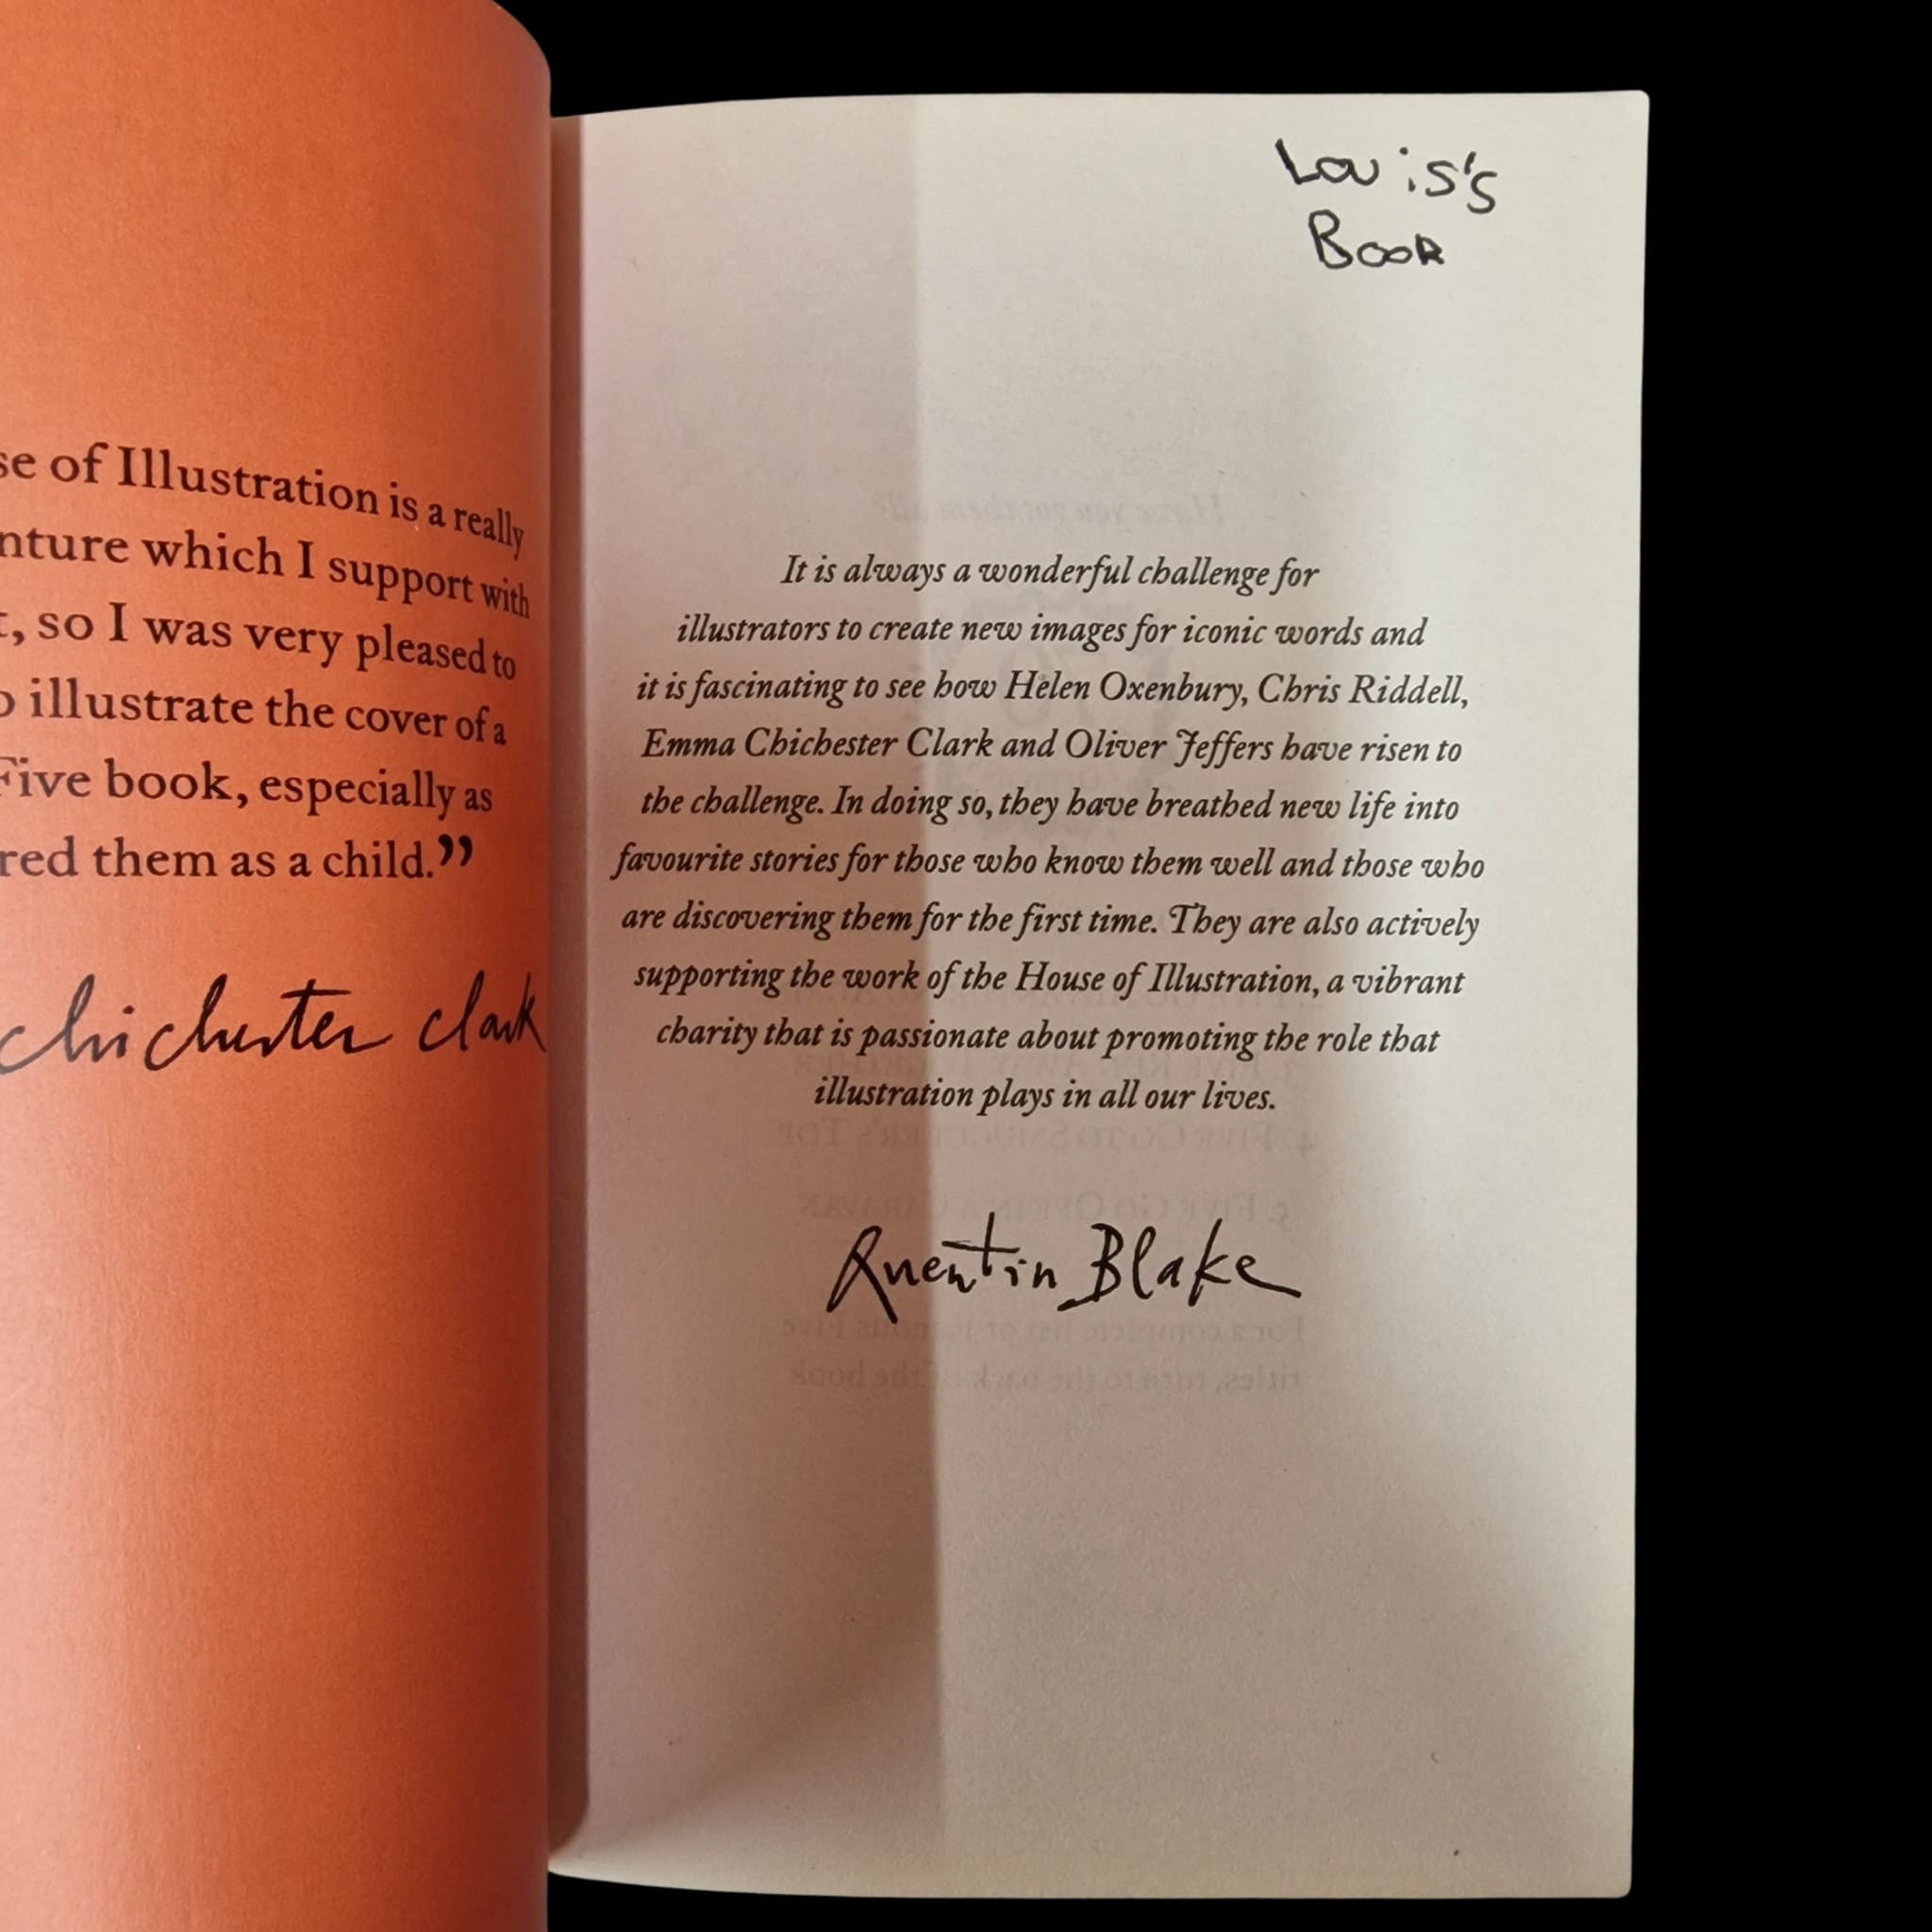 se of Illustration is a really
nture which I support with
t, so I was very pleased to
o illustrate the cover of a
Five book, especially as
red them as a child.”
Chichester Clark
Louis's
Book
It is always a wonderful challenge for
illustrators to create new images for iconic words and
it is fascinating to see how Helen Oxenbury, Chris Riddell,
Emma Chichester Clark and Oliver Jeffers have risen to
the challenge. In doing so, they have breathed new life into
favourite stories for those who know them well and those who
are discovering them for the first time. They are also actively
supporting the work of the House of Illustration, a vibrant
charity that is passionate about promoting the role that
illustration plays in all our lives.
Quentin Blake